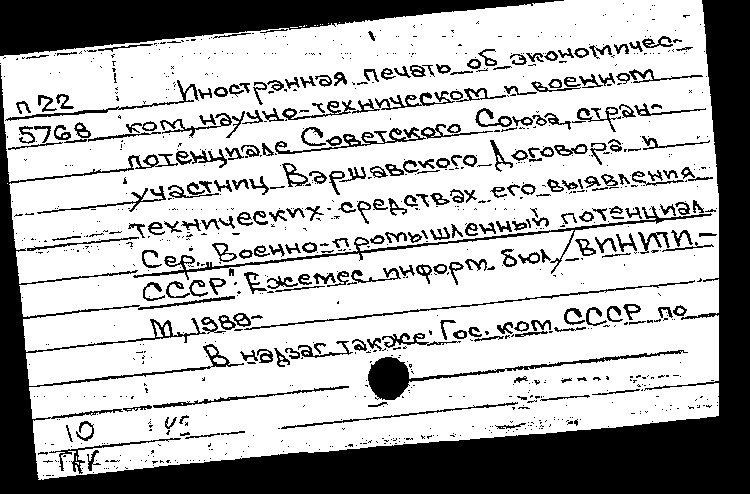 Иностранная печать об экономичес-
п 22
ком, научно-техническом и военном
5768
потенциале Советского Союза, стран-
участниц Варшавского Договора и
технических средствах его выявления.
Сер. "Военно-промышленный потенциал
СССР": Ежемес. информ. бюл. / ВИНИТИ. –
М., 1989-
В надзаг. также: Гос. ком. СССР по
10 45